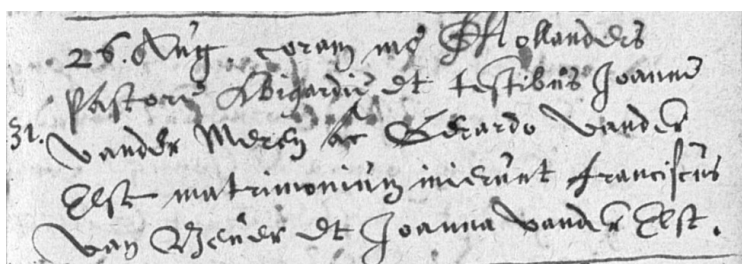 26. Aug. coram me Hollanders
Pastore Bigardis et testibus Joanne
31. vander Meren ac Gerardo vander
Elst matrimonium inierunt Franciscus
van Bever et Joanna vander Elst.